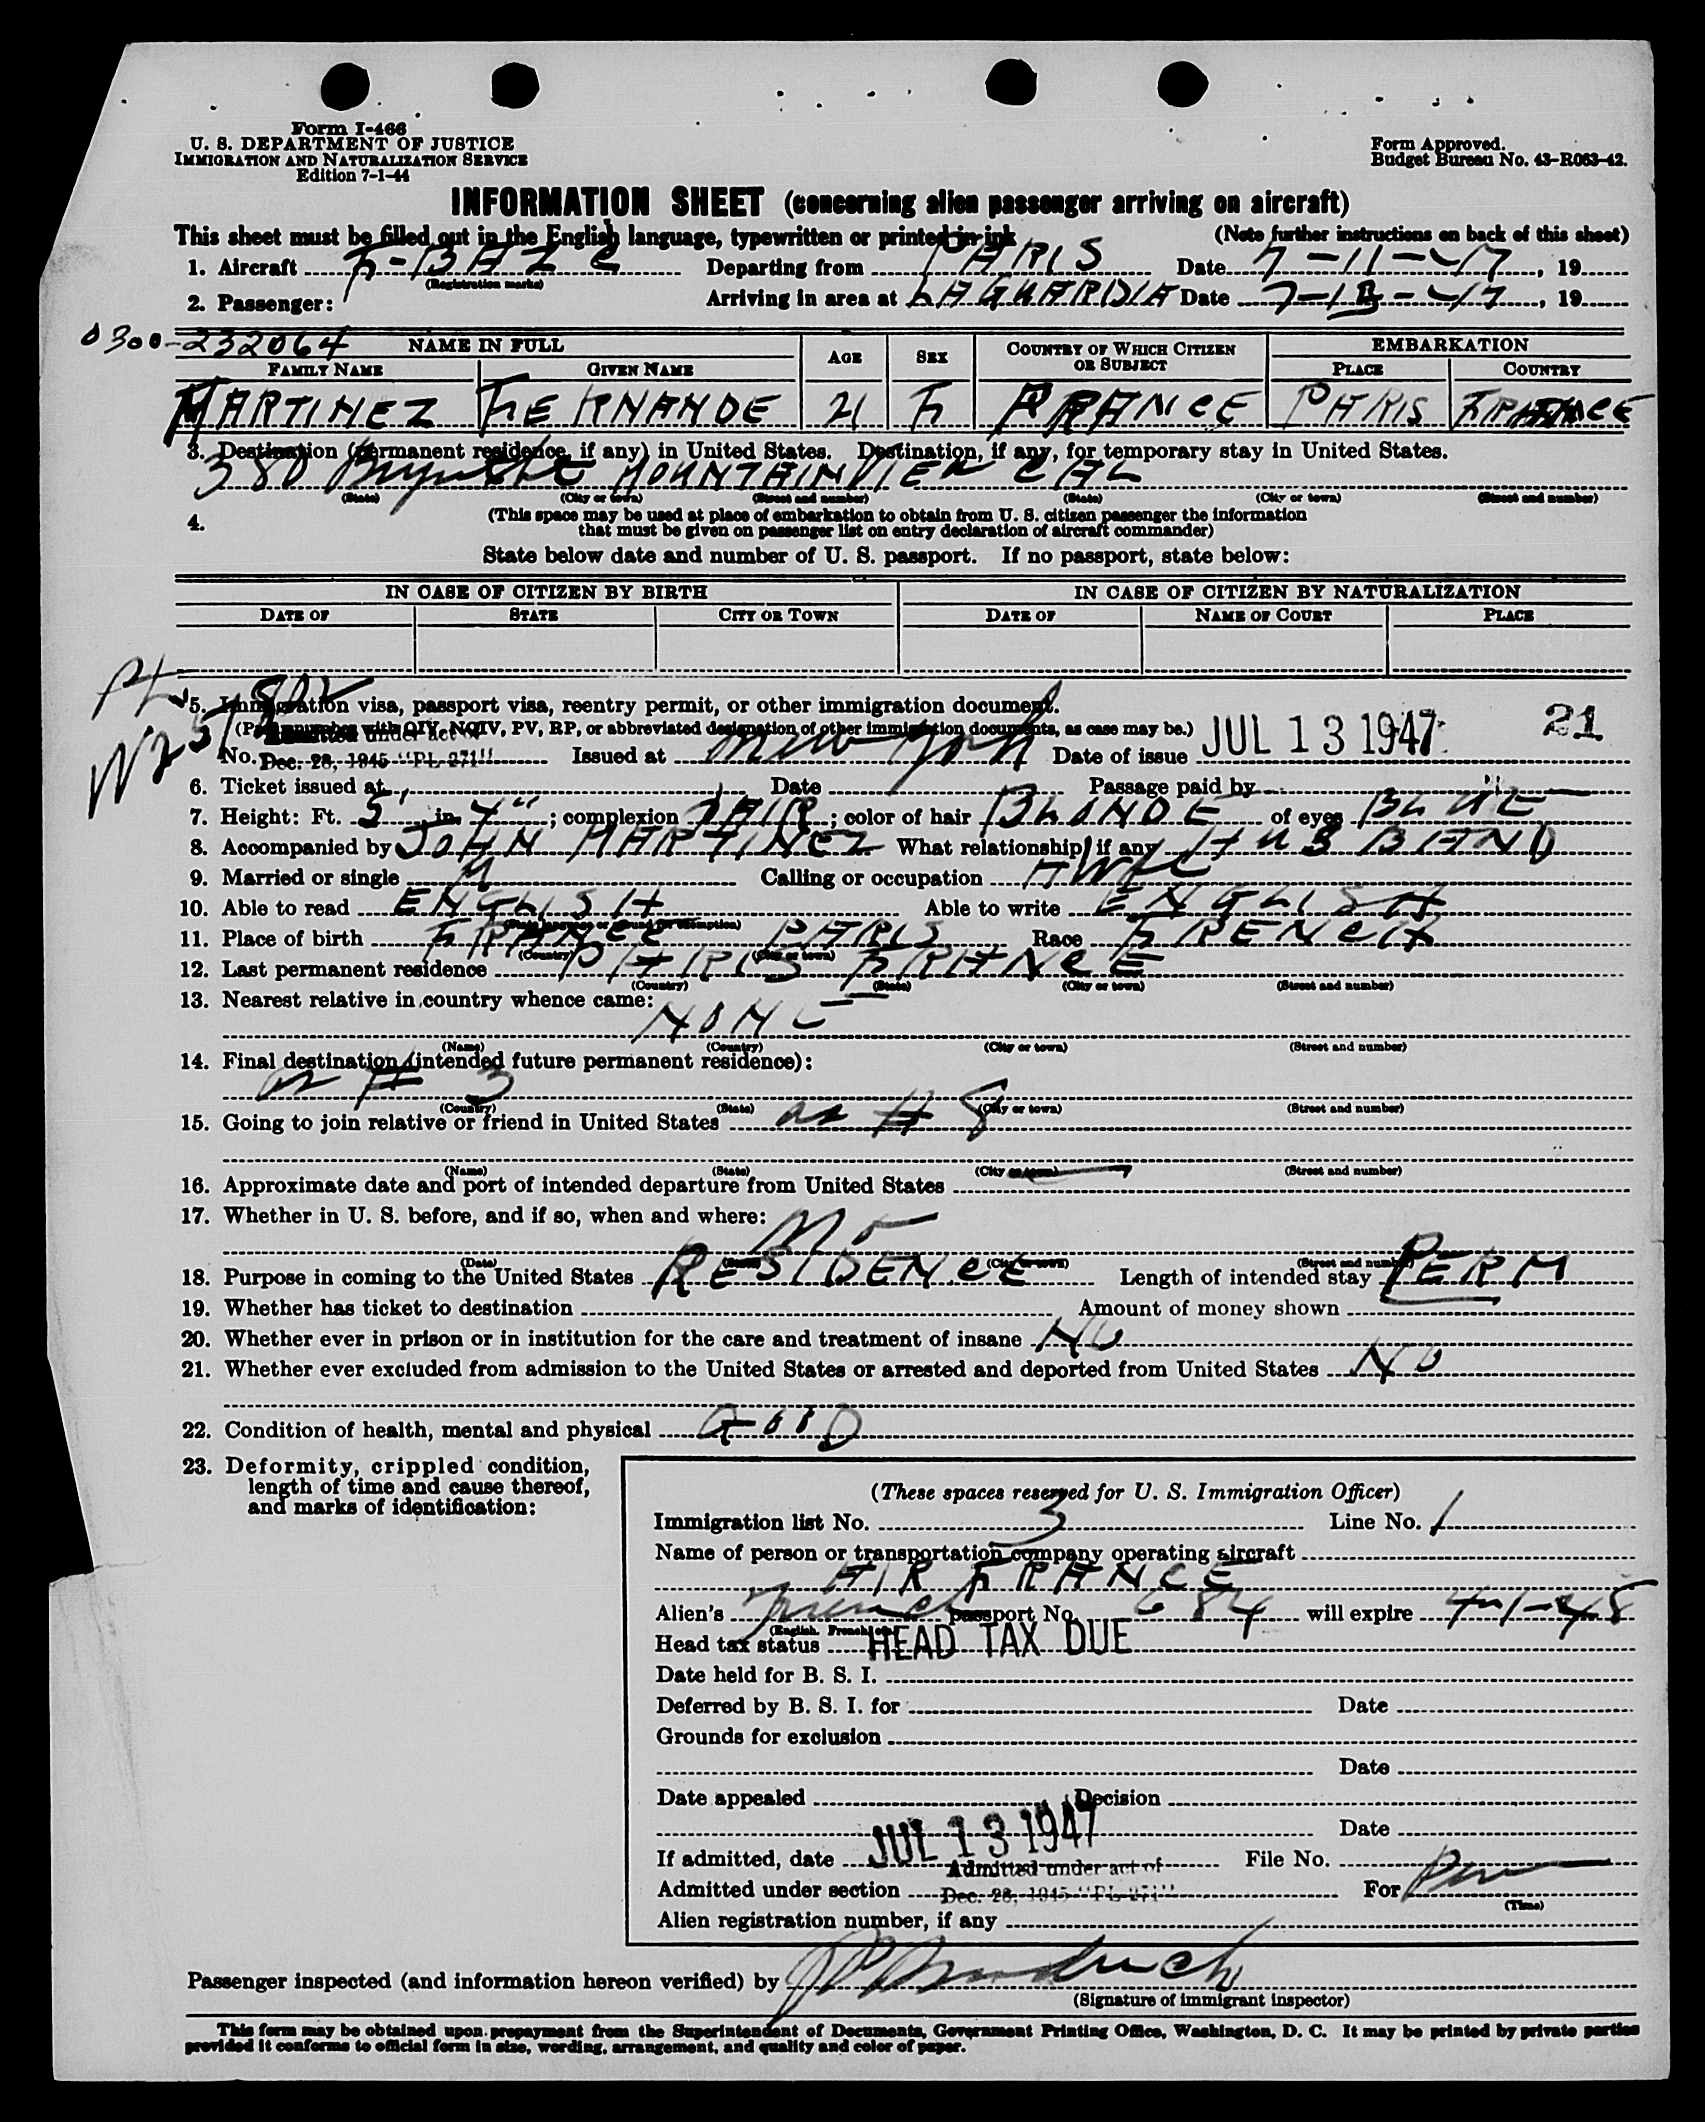 Form I-466
U. S. DEPARTMENT OF JUSTICE
IMMIGRATION AND NATURALIZATION SERVICE
Edition 7-1-44
Form Approved.
Budget Bureau No. 43-R063-42.
INFORMATION SHEET (concerning alien passenger arriving on aircraft)
This sheet must be filled out in the English language, typewritten or printed in ink (Note further instructions on back of this sheet)
1. Aircraft F-BAZC Departing from PARIS Date 7-11-47, 19
(Registration marks)
2. Passenger: Arriving in area at LAGUARDIA Date 7-13-47, 19
0300-232064
NAME IN FULL AGE SEX COUNTRY OF WHICH CITIZEN OR SUBJECT EMBARKATION
FAMILY NAME GIVEN NAME PLACE COUNTRY
MARTINEZ FERNANDE 21 F FRANCE PARIS FRANCE
3. Destination (permanent residence, if any) in United States. Destination, if any, for temporary stay in United States.
380 MOUNTAINVIEW CAL
(State) (City or town) (Street and number) (State) (City or town) (Street and number)
4. (This space may be used at place of embarkation to obtain from U. S. citizen passenger the information
that must be given on passenger list on entry declaration of aircraft commander)
State below date and number of U. S. passport. If no passport, state below:
IN CASE OF CITIZEN BY BIRTH IN CASE OF CITIZEN BY NATURALIZATION
DATE OF STATE CITY OR TOWN DATE OF NAME OF COURT PLACE
5. Immigration visa, passport visa, reentry permit, or other immigration document.
(Put number with QIV, NQIV, PV, RP, or abbreviated designation of other immigration documents, as case may be.)
Admitted under act of
No. Dec. 28, 1945 "PL 271" Issued at New York Date of issue JUL 13 1947 21
6. Ticket issued at Date Passage paid by
7. Height: Ft. 5' in. 4"; complexion FAIR; color of hair BLONDE of eyes BLUE
8. Accompanied by JOHN MARTINEZ What relationship, if any HUSBAND
9. Married or single M Calling or occupation HWFE
10. Able to read ENGLISH Able to write ENGLISH
11. Place of birth FRANCE PARIS Race FRENCH
(Country) (City or town)
12. Last permanent residence PARIS FRANCE
(Country) (State) (City or town) (Street and number)
13. Nearest relative in country whence came:
NONE
(Name) (Country) (City or town) (Street and number)
14. Final destination (intended future permanent residence):
as # 3
(Country) (State) (City or town) (Street and number)
15. Going to join relative or friend in United States as # 8
(Name) (State) (City or town) (Street and number)
16. Approximate date and port of intended departure from United States
17. Whether in U. S. before, and if so, when and where:
No
(Date) (State) (City or town) (Street and number)
18. Purpose in coming to the United States RESIDENCE Length of intended stay PERM
19. Whether has ticket to destination Amount of money shown
20. Whether ever in prison or in institution for the care and treatment of insane NO
21. Whether ever excluded from admission to the United States or arrested and deported from United States NO
22. Condition of health, mental and physical GOOD
23. Deformity, crippled condition,
length of time and cause thereof,
and marks of identification:
(These spaces reserved for U. S. Immigration Officer)
Immigration list No. 3 Line No. 1
Name of person or transportation company operating aircraft
AIR FRANCE
Alien's French passport No. 684 will expire 4-1-48
(English, French, etc.)
Head tax status HEAD TAX DUE
Date held for B. S. I.
Deferred by B. S. I. for Date
Grounds for exclusion
Date
Date appealed Decision
Date
If admitted, date JUL 13 1947 File No.
Admitted under act of
Admitted under section Dec. 28, 1945 "PL 271" For Perm
(Time)
Alien registration number, if any
Passenger inspected (and information hereon verified) by
(Signature of immigrant inspector)
This form may be obtained upon prepayment from the Superintendent of Documents, Government Printing Office, Washington, D. C. It may be printed by private parties
provided it conforms to official form in size, wording, arrangement, and quality and color of paper.